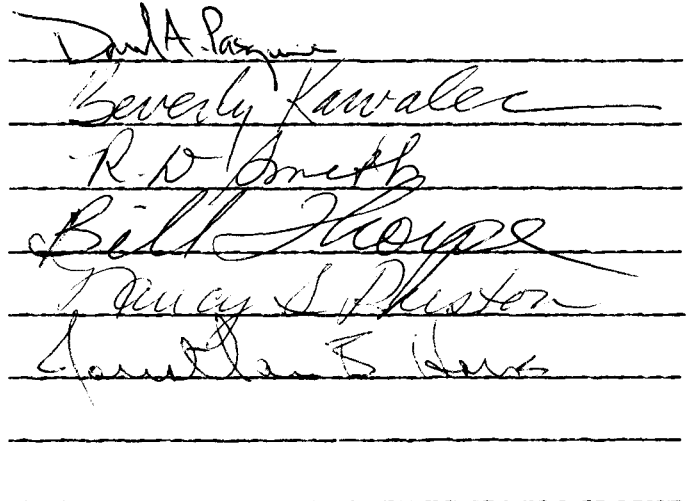 David A. Pasquine
Beverly Kawalec
R. D. Smith
Bill Thorpe
Nancy S Preston
Jonathan B Howes